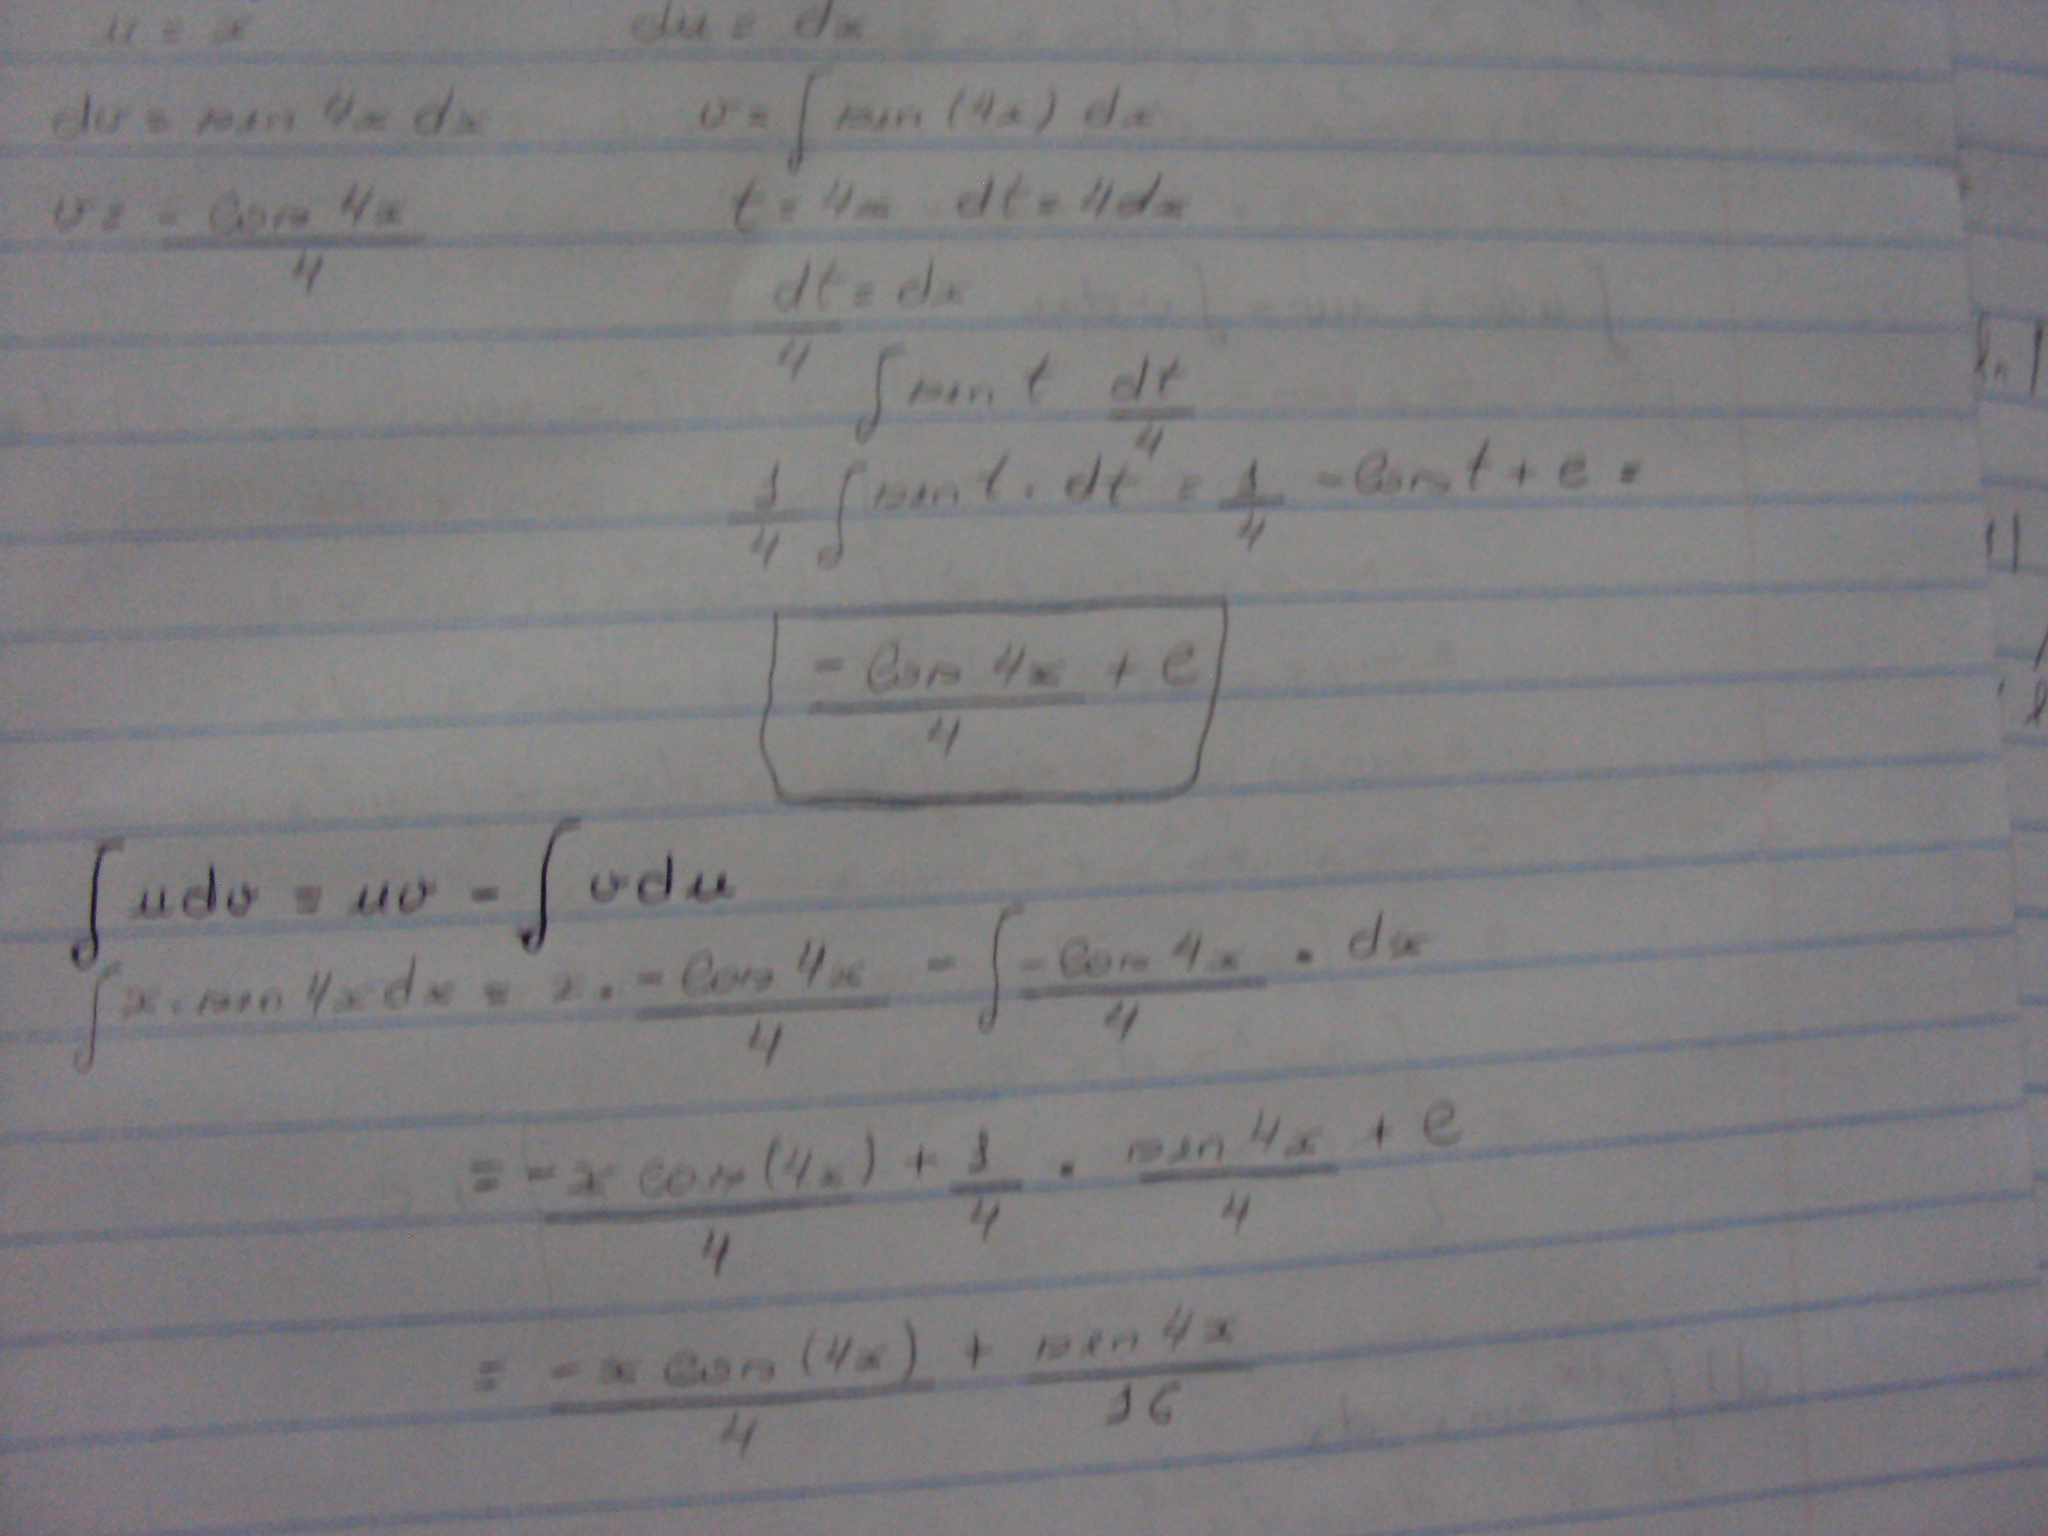 u = x du = dx
dv = sen 4x dx v = ∫ sen (4x) dx
v = - cos 4x / 4 t = 4x dt = 4dx
dt / 4 = dx
∫ sen t dt / 4
1 / 4 ∫ sen t . dt = 1 / 4 - cos t + c =
- cos 4x / 4 + c
∫ u dv = uv - ∫ v du
∫ x . sen 4x dx = x . - cos 4x / 4 - ∫ - cos 4x / 4 . dx
= - x cos (4x) / 4 + 1 / 4 . sen 4x / 4 + c
= - x cos (4x) / 4 + sen 4x / 16